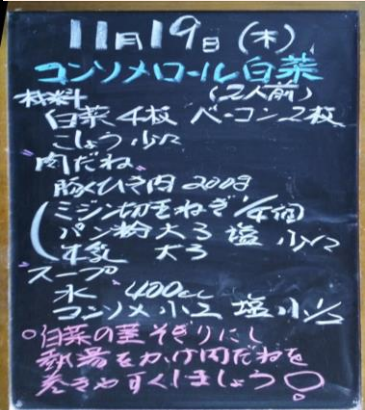 11月19日(木)
コンソメロール白菜
材料 (2人前)
白菜 4枚 ベーコン2枚
こしょう 少々
"肉だね"
豚ひき肉 200g
ミジン切玉ねぎ 1/4個
パン粉 大3 塩 少々
牛乳 大3
"スープ"
水 400cc
コンソメ 小2 塩 小1/2
○白菜の茎そぎりにし
熱湯をかけ肉だねを
巻きやすくしましょう